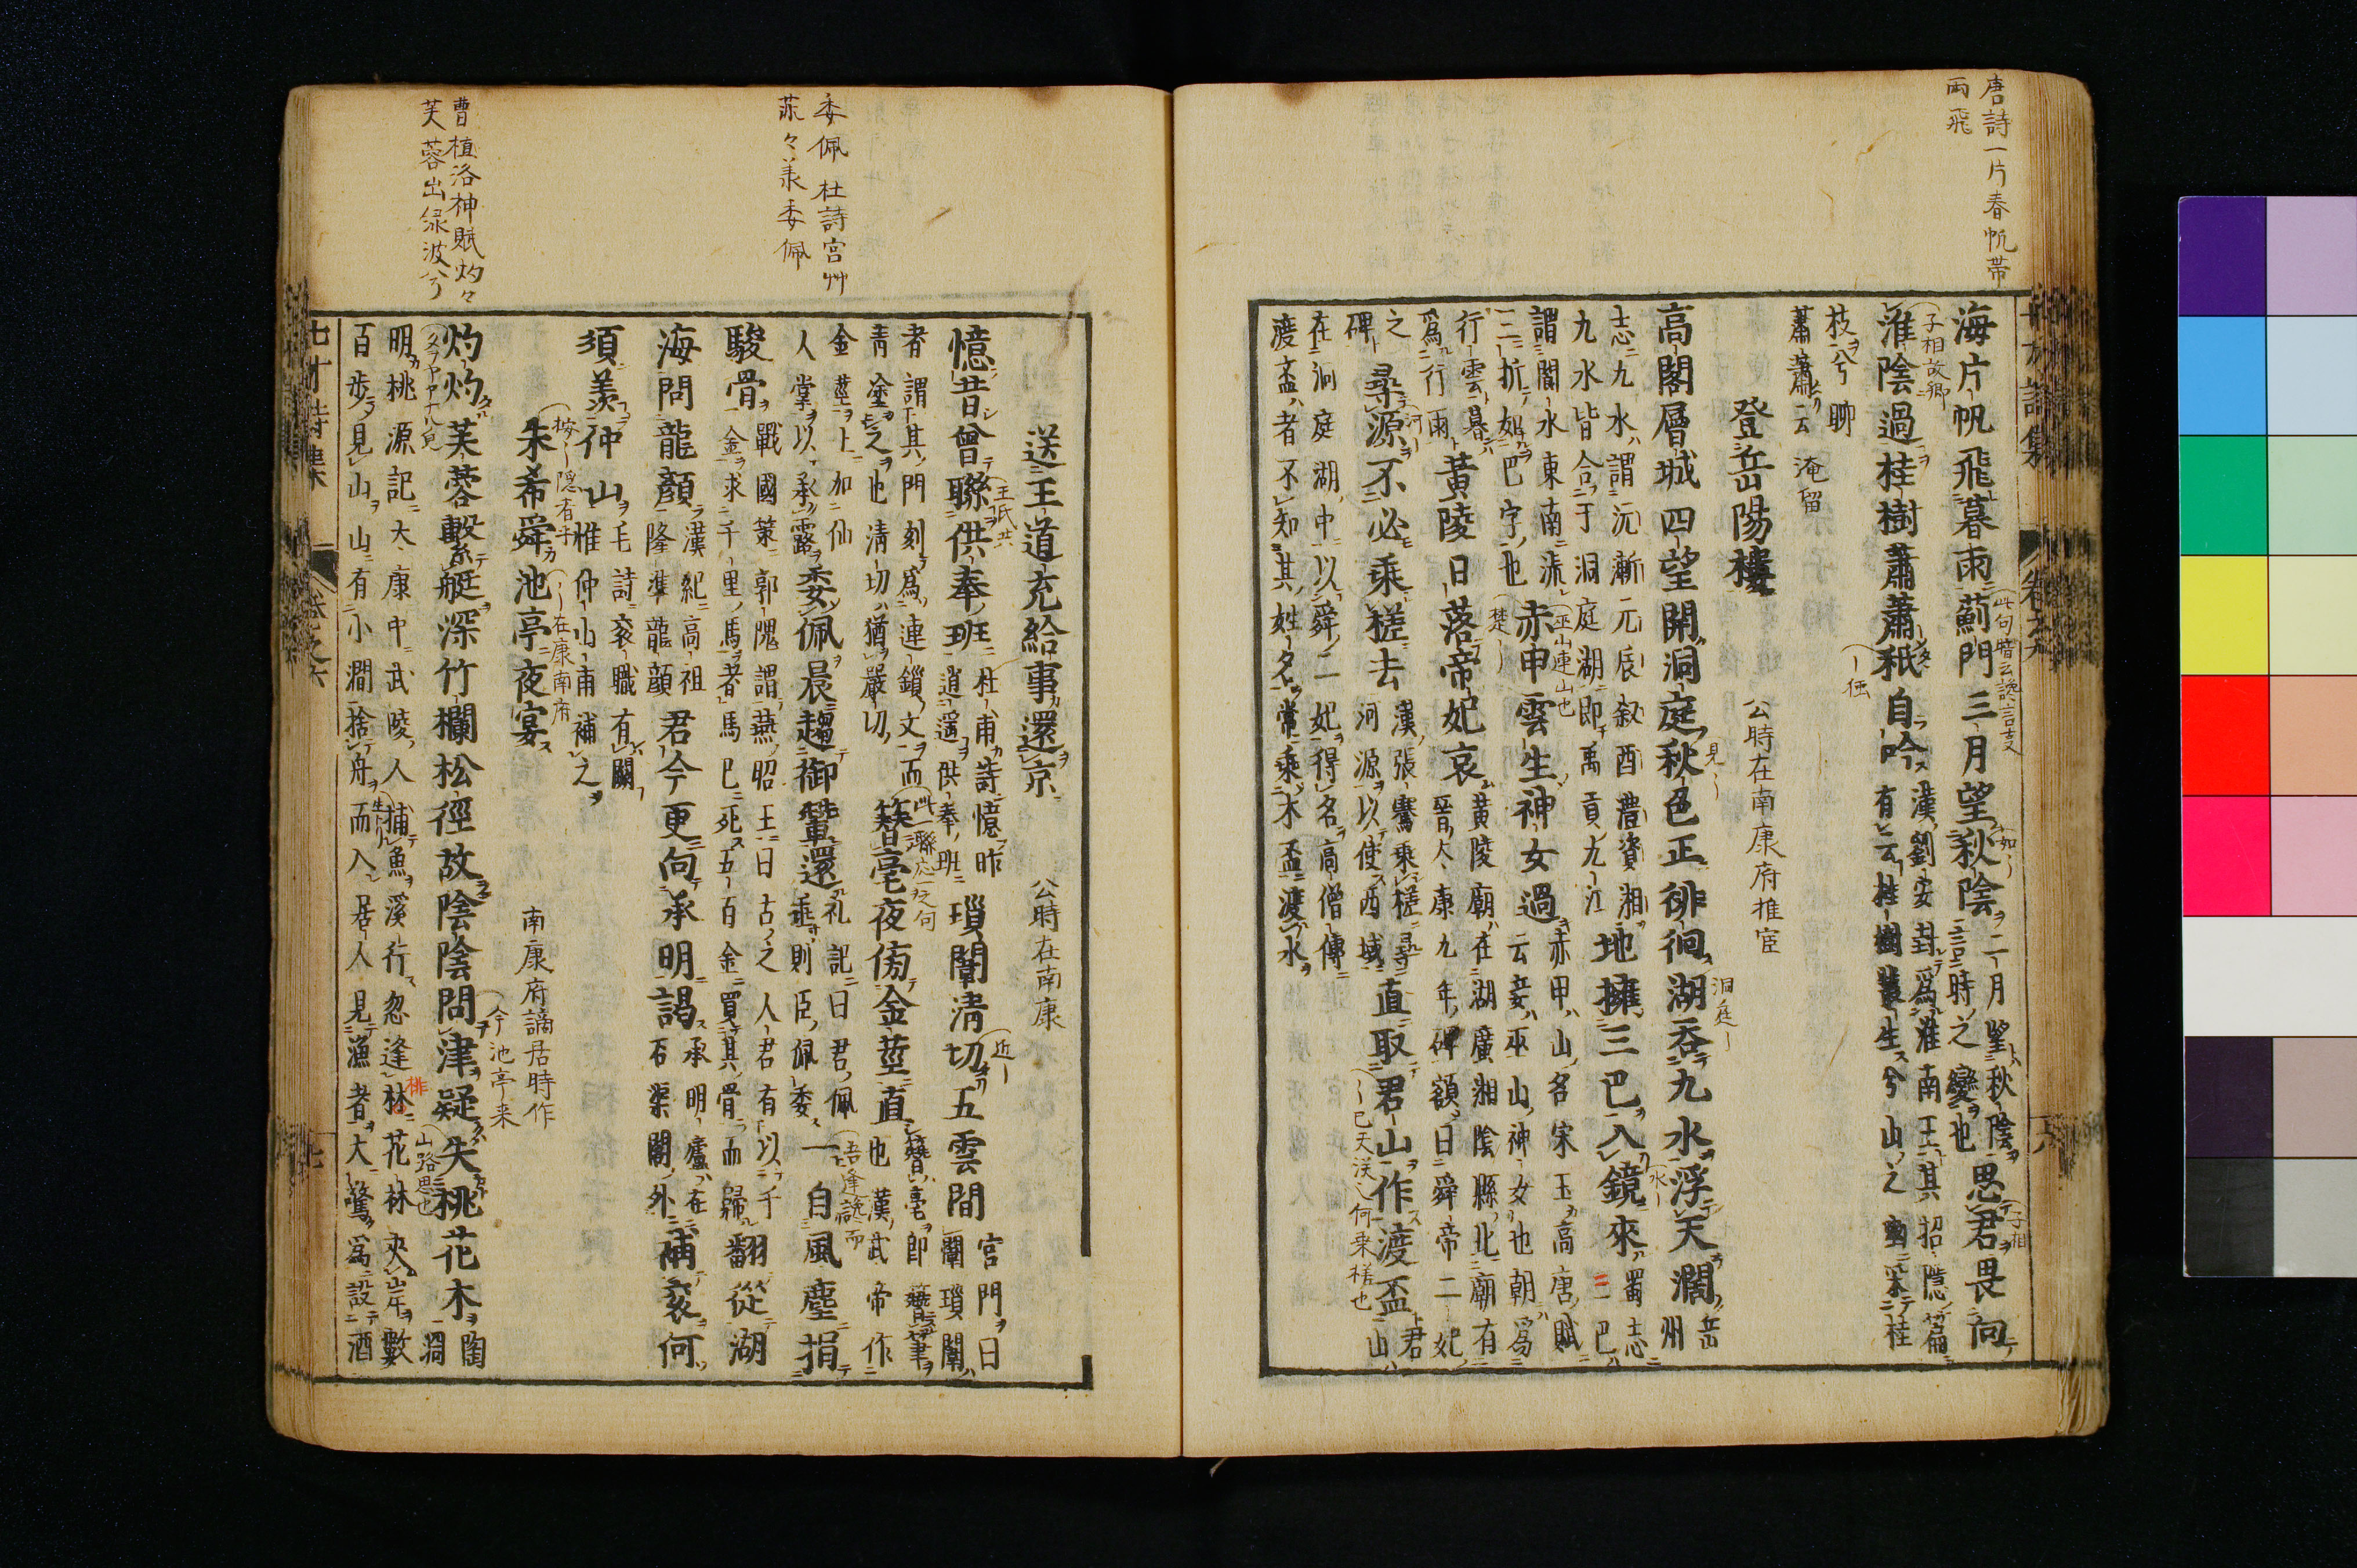 唐詩一片春帆帯
雨飛
海片帆飛暮雨薊門三月望秋陰二月望秋陰
言時之變也思君畏向
此句暗云讒言支
子相故郷
淮陰過桂樹蕭蕭秖自吟漢劉安封爲淮南王其招隱篇
有云桂樹叢生兮山之幽采桂
枝兮聊
蕭蕭云淹留
登岳陽樓
公時在南康府推宦
高閣層城四望開洞庭秋色正徘徊湖呑九水浮天濶岳州
志九水謂沅漸元辰叙酉澧資湘
九水皆合于洞庭湖即禹貢九江地擁三巴入鏡來蜀志三巴
謂閬水東南流
三折如巴字也赤甲雲生神女過赤甲山名宋玉高唐賦
云妾巫山神女也朝爲
巫山連山也
行雲暮
爲行雨黃陵日落帝妃哀黃陵廟在湖廣湘陰縣北廟有
晉太康九年碑額曰舜帝二妃
之
碑尋源不必乘槎去漢張騫乘槎尋
河源以使西域直取君山作渡盃君山
在洞庭湖中以舜二妃得名高僧傳
渡盃者不知其姓名常乘木盃渡水
委佩 杜詩宮艸
曹植洛神賦灼々
芙蓉出緑波兮
送王道充給事還京
公時在南康
憶昔曾聯供奉班杜甫詩憶昨
逍遥供奉班瑣闈淸切五雲間宮門曰
闈瑣闈
者謂其門刻爲連鎖文而
靑塗之也淸切猶嚴切簪毫夜傍金莖直簪毫即簪筆
也漢武帝作
金莖上加仙
人掌以承露委佩晨趨御輦還礼記曰君佩
垂則臣佩委一自風塵捐
駿骨戰國策郭隗謂燕昭王曰古之人君有以千
金求千里馬者馬已死五百金買其骨而歸翻從湖
海問龍顏漢紀高祖
隆準龍顏君今更向承明謁承明廬在
石渠閣外補袞何
須羨仲山毛詩袞職有闕
惟仲山甫補之
朱希舜池亭夜宴
南康府謫居時作
灼灼芙蓉繫艇深竹欄松徑故陰陰問津疑失桃花木陶
淵
明桃源記大康中武陵人捕魚溪行忽逢林花林夾岸數
百步見山山有小澗捨舟而入居人見漁者大驚爲設酒